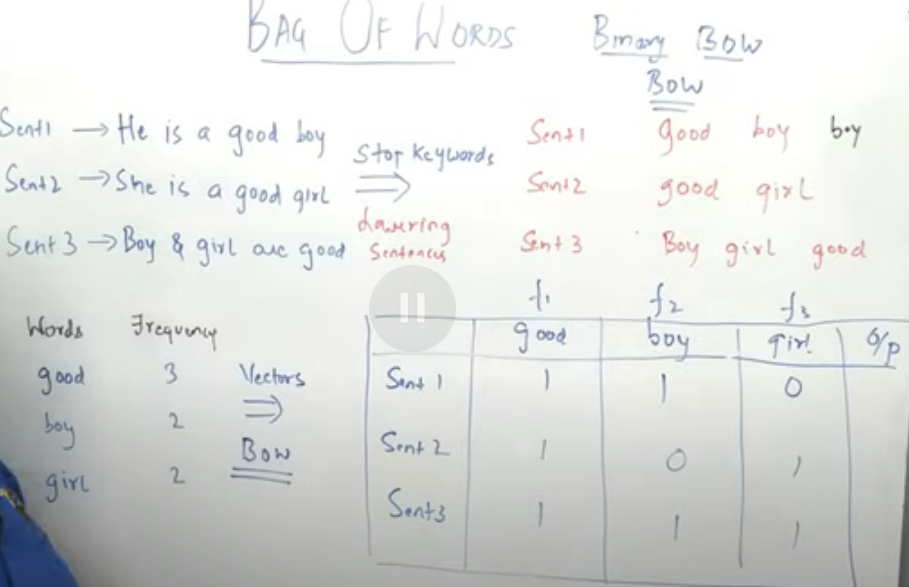 BAG OF WORDS
Binary BOW
BOW
Sent1 → He is a good boy
Sent2 → She is a good girl
Sent 3 → Boy & girl are good
Stop Keywords
⇒
Lowering
Sentences
Sent1 good boy boy
Sent2 good girl
Sent 3 Boy girl good
Words Frequency
good 3
boy 2
girl 2
Vectors
⇒
BOW
f1 f2 f3
good boy girl O/p
Sent 1 1 1 0
Sent 2 1 0 1
Sent3 1 1 1